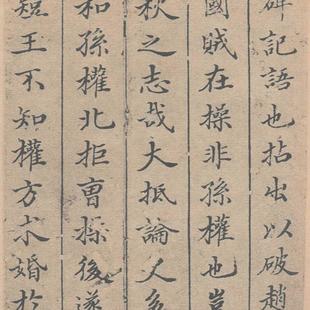 碑記語也拈出以破趙
國賊在操非孫權也豈
秋之志哉大抵論人多
和孫權北拒曹操後遂
短王不知權方求婚於